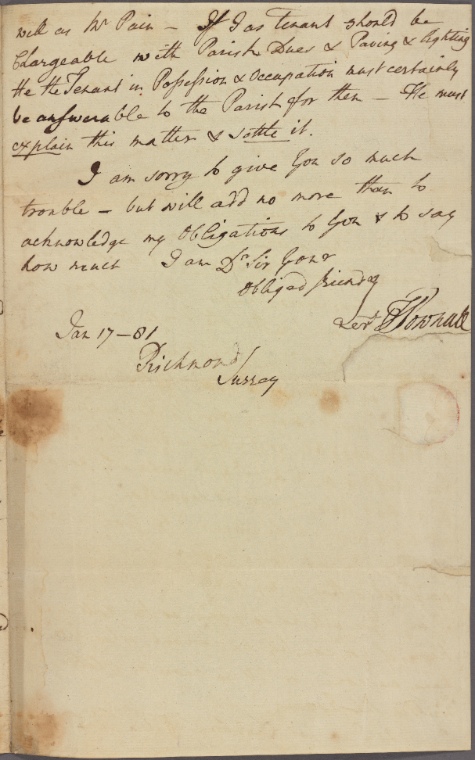 well as Mr Pain – If I as tenant should be
Chargeable with Parish Dues & Paving & lighting
He the Tenant in Possession & Occupation must certainly
be answerable to the Parish for them – He must
explain this matter & settle it.
I am sorry to give You so much
trouble – but will add no more than to
acknowledge my Obligations to You & to say
how much I am Dr Sir Your
Obliged friend &
Servt T Pownall
Jan 17–81
Richmond
Surrey